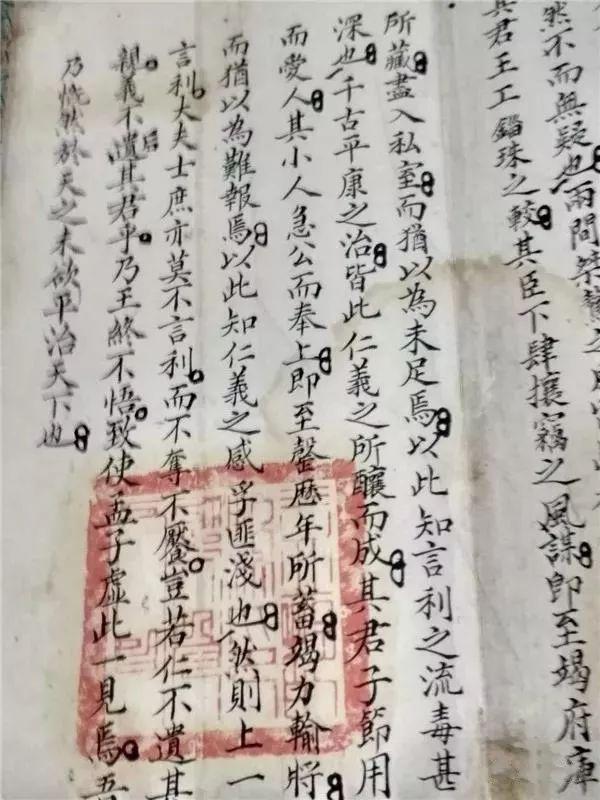 然不而無疑也兩間桀驁之
其君王工錙珠之較其臣下肆攘竊之風謀即至竭府庫
所藏盡入私室而猶以為未足焉以此知言利之流毒甚
深也千古平康之治皆此仁義之所釀而成其君子節用
而愛人其小人急公而奉上即至罄歷年所蓄竭力輸將
而猶以為難報焉以此知仁義之感孚匪淺也然則上一
言利大夫士庶亦莫不言利而不奪不饜豈若仁不遺其
親義不遺其君乎乃王終不悟致使孟子虛此一見焉吾
后
乃恍然於天之未欲平治天下也